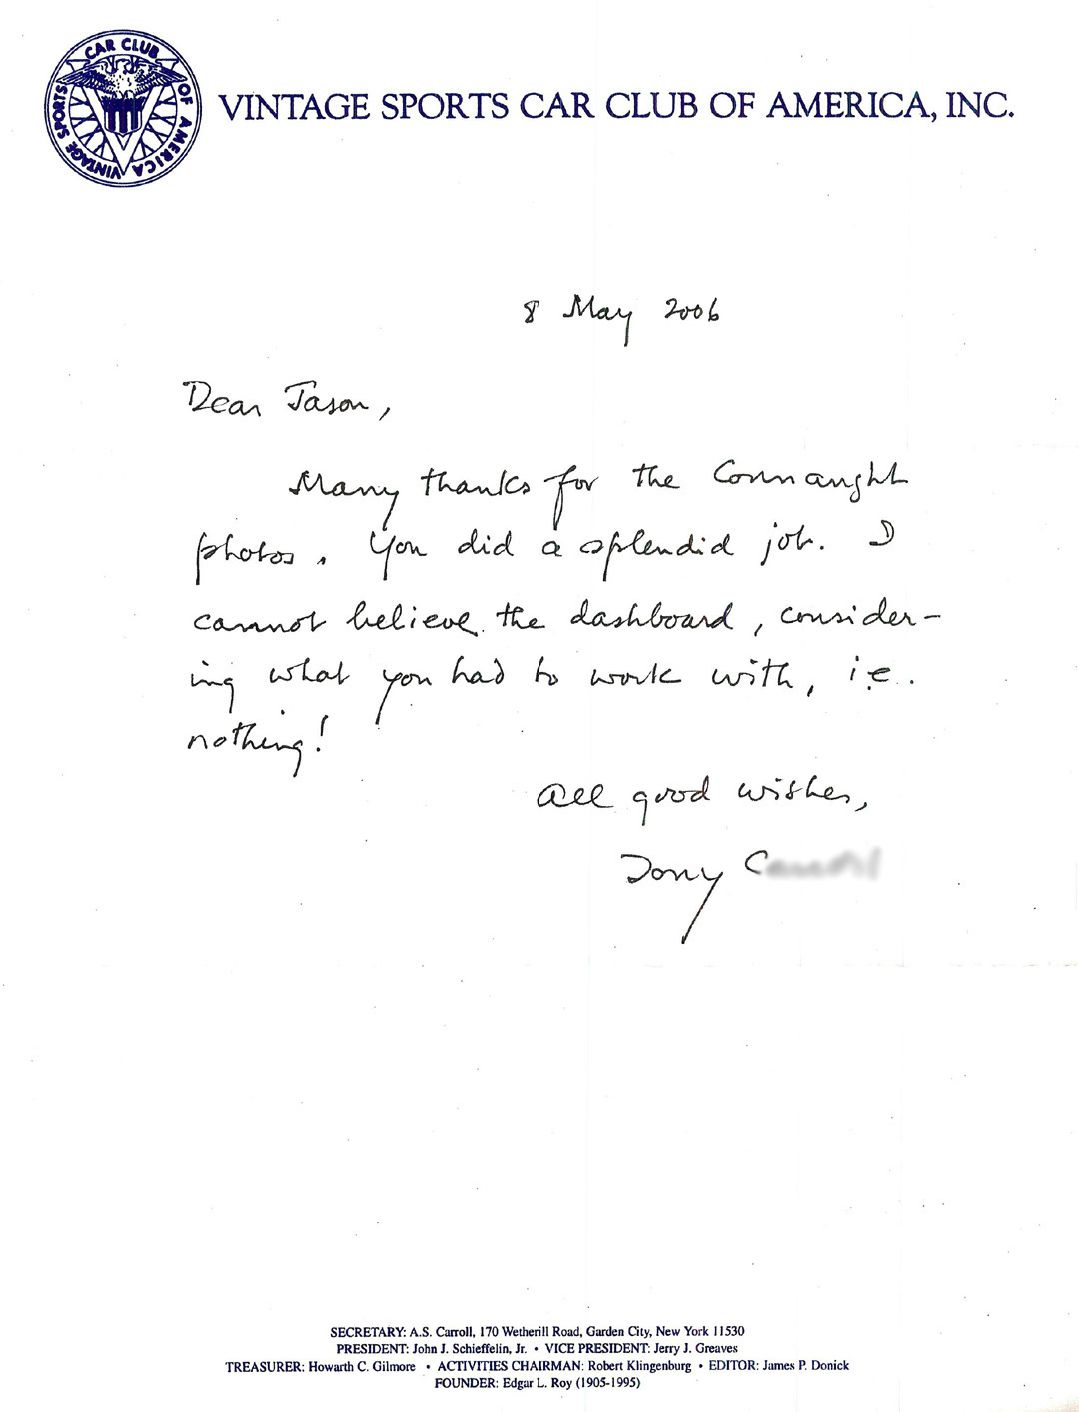 CAR CLUB OF AMERICA VINTAGE SPORTS
VINTAGE SPORTS CAR CLUB OF AMERICA, INC.
8 May 2006
Dear Jason,
Many thanks for the Connaught
photos. You did a splendid job. I
cannot believe the dashboard, consider-
ing what you had to work with, i.e.
nothing!
All good wishes,
Tony
SECRETARY: A.S. Carroll, 170 Wetherill Road, Garden City, New York 11530
PRESIDENT: John J. Schieffelin, Jr. • VICE PRESIDENT: Jerry J. Greaves
TREASURER: Howarth C. Gilmore • ACTIVITIES CHAIRMAN: Robert Klingenburg • EDITOR: James P. Donick
FOUNDER: Edgar L. Roy (1905-1995)